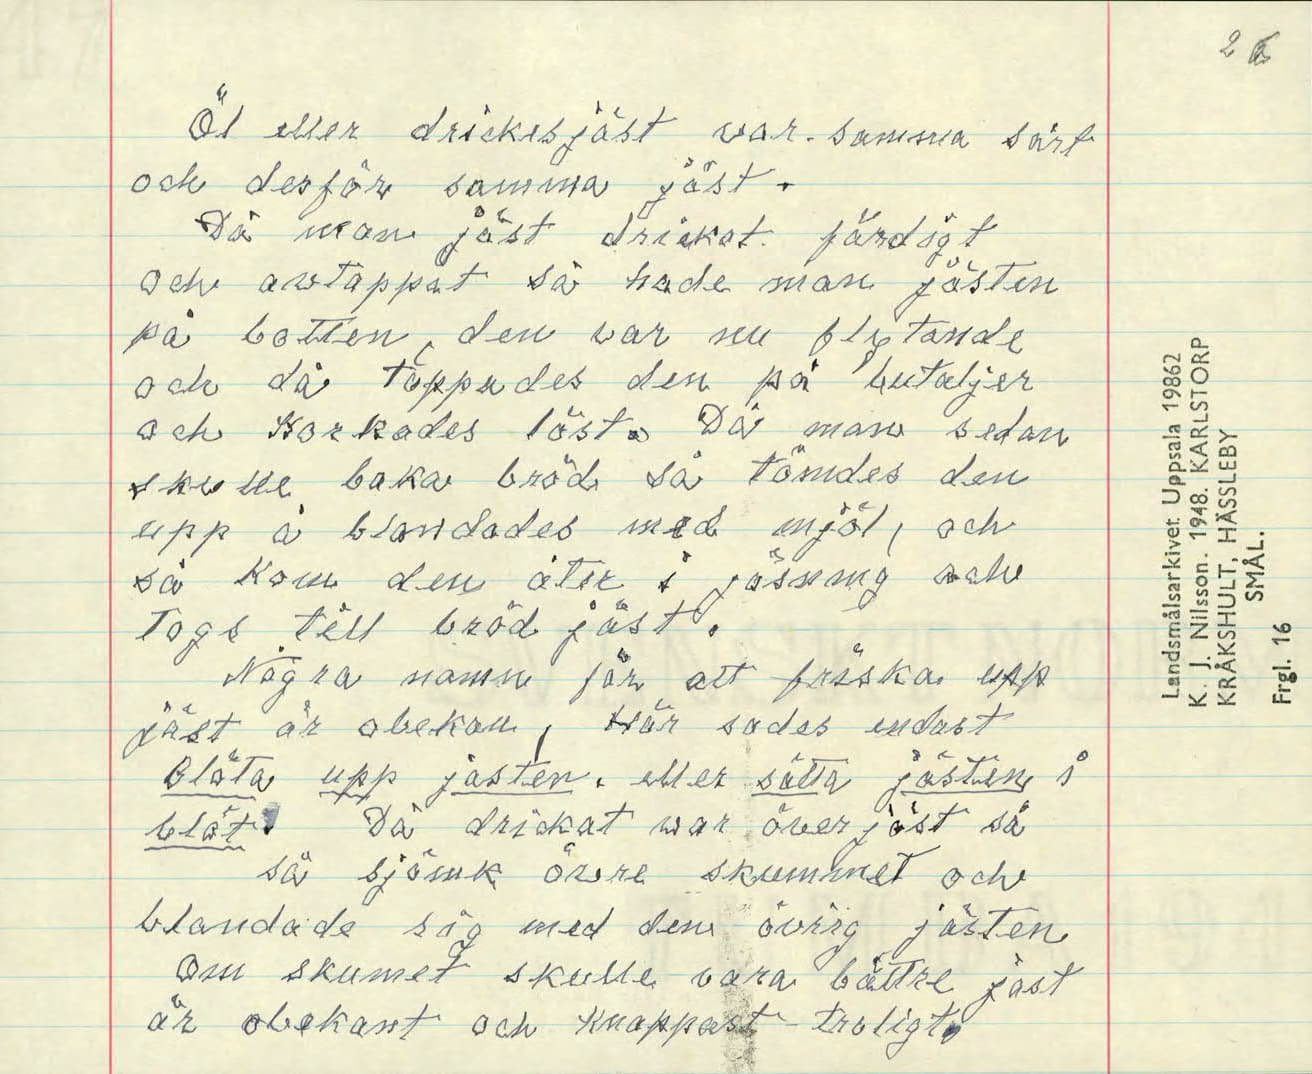 2
Öl eller drickesjäst var samma sort
och derför samma jäst.
Då man jäst drickat färdigt
och avtappat så hade man jästen
på botten, den var nu flytande
och då tappades den på butaljer
och korkades löst. Då man sedan
skulle baka bröd så tömdes den
upp å blandades med mjöl, och
så kom den åter i jäsning och
togs till bröd jäst.
Några namn för att friska upp
jäst är obekan, Här sades endast
blöta upp jästen. eller sätta jästen i
blöt. Då drickat var överjäst så
så sjönk övre skummet och
blandade sig med den övrig jästen
om skumet skulle vara bättre jäst
är obekant och knappast troligt.
Landsmålsarkivet Uppsala 19862
K. J. Nilsson. 1948. KARLSTORP
KRÅKSHULT, HÄSSLEBY
SMÅL.
Frgl. 16